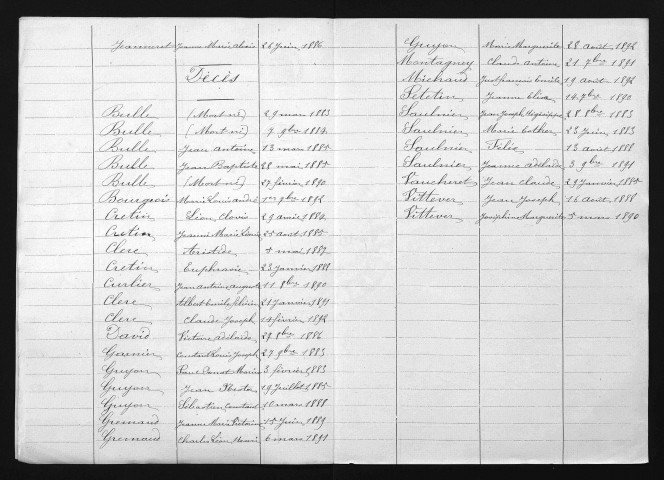 Jeannert Jeanne Marie alexis 26 juin 1886
Décès
Bulle (Mort né) 29 mars 1883
Bulle (Mort né) 9 9bre 1884
Bulle Jean antoine 13 mars 1885
Bulle Jean Baptiste 28 mai 1885
Bulle (Mort né) 27 février 1890
Bourgeois Marie Louis andré 1er 9bre 1892
Cretin Léon clovis 29 avril 1884
Cretin Jeanne Marie Léonie 25 août 1885
Clerc Aristide mai 1887
Cretin Euphrasie 23 janvier 1888
Curlier Jean antoine auguste 11 8bre 1890
Clerc Albert emile 21 janvier 1891
Clerc Claude Joseph 14 février 1892
David Victoire adelaide 29 8bre 1886
Garnier Constant Louis Joseph 27 9bre 1883
Guyon Paul Donat Marie 3 février 1883
Guyon Jean 19 juillet 1885
Guyon Sébastien Constant 10 mars 1888
Grenaud Jeanne Marie Victorine 15 juin 1889
Grenaud Charles Léon 6 mars 1891
Guyon Marie Marguerite 28 août 1892
Montagney Claude antoine 21 7bre 1891
Michaud Just françois emile 19 août 1892
Petetin Jeanne Elisa 14 7bre 1890
Saulnier Jean Joseph 28 8bre 1883
Saulnier Marie 23 juin 1883
Saulnier Félix 13 août 1888
Saulnier Jeanne adélaide 3 9bre 1891
Vaucheret Jean claude 29 janvier 1885
Vittever Jean Joseph 16 août 1888
Vittever Joséphine Marguerite 5 mars 1890